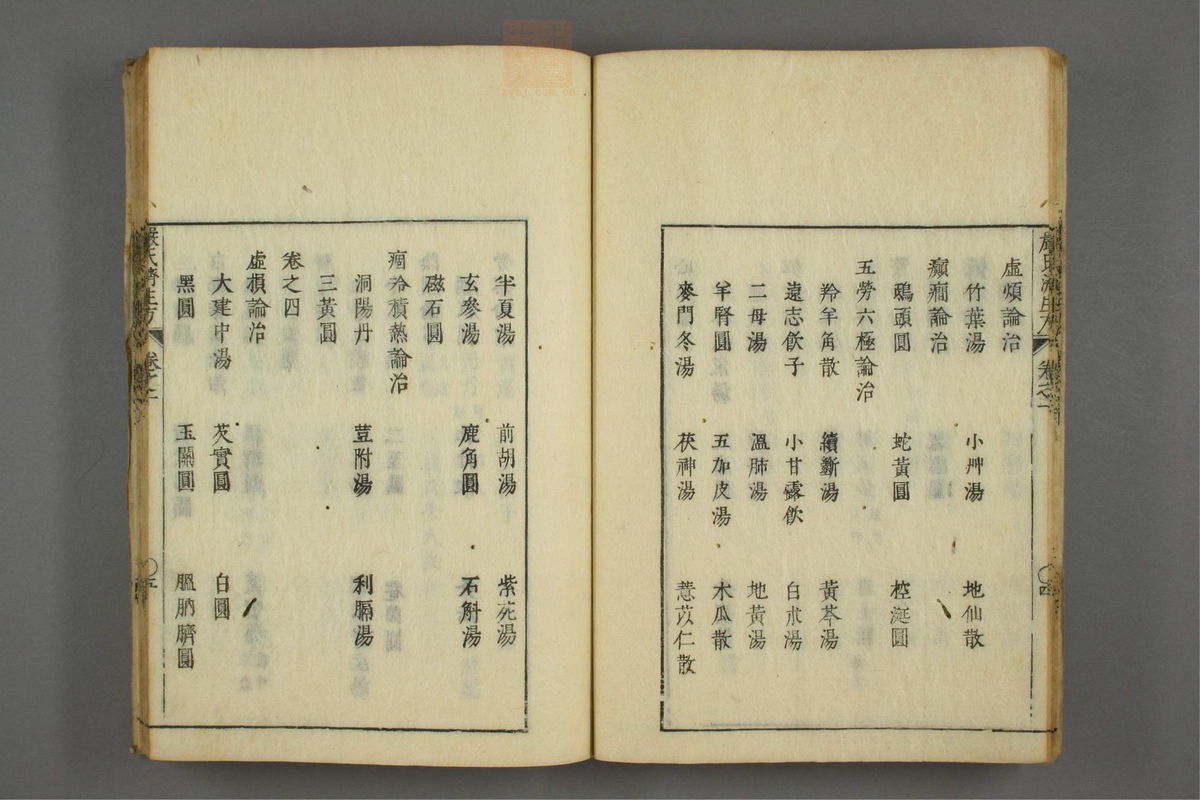 虛煩論治
竹葉湯 小艸湯 地仙散
癲癇論治
鴟頭圓 蛇黃圓 控涎圓
五勞六極論治
羚羊角散 續斷湯 黃芩湯
遠志飲子 小甘露飲 白朮湯
二母湯 溫肺湯 地黃湯
羊腎圓 五加皮湯 木瓜散
麥門冬湯 茯神湯 薏苡仁散
半夏湯 前胡湯 紫菀湯
玄參湯 鹿角圓 石斛湯
磁石圓
痼冷積熱論治
洞陽丹 荳附湯 利膈湯
三黃圓
卷之四
虛損論治
大建中湯 芡實圓 白圓
黑圓 玉關圓 膃肭臍圓
嚴氏濟生方 卷之 五